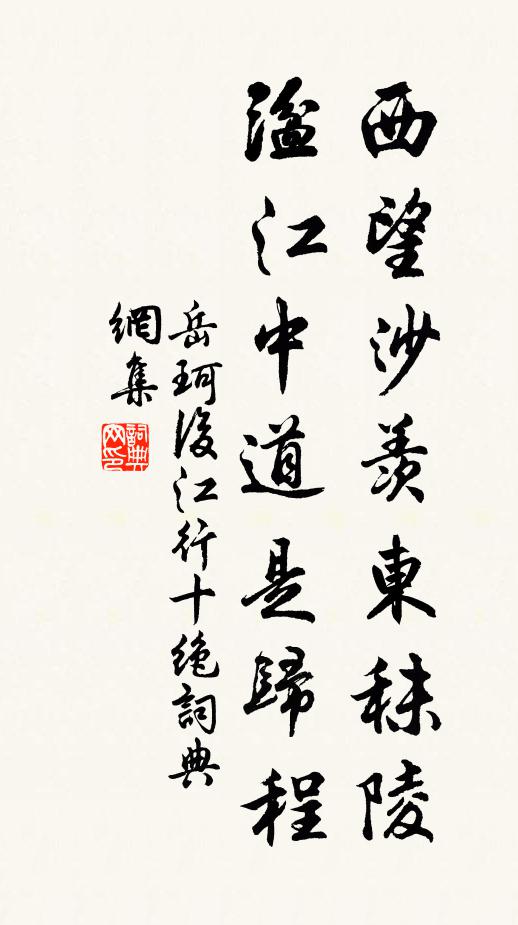 西望沙羡東秣陵
湓江中道是歸程
岳珂後江行十絶詞典
網集
詞典
网印